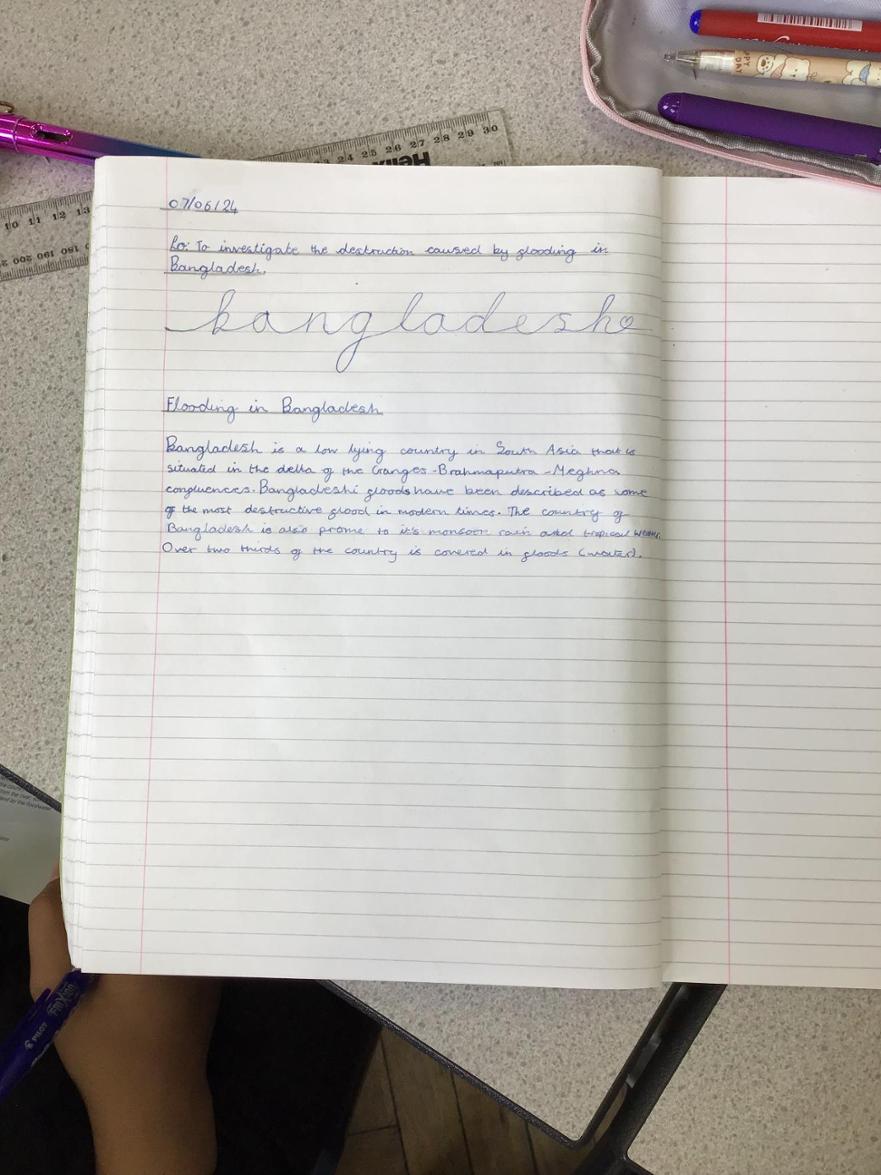 07/06/24
Lo: To investigate the destruction caused by flooding in
Bangladesh.
bangladesh
Flooding in Bangladesh
Bangladesh is a low lying country in South Asia that is
situated in the delta of the Ganges-Brahmaputra-Meghna
confluences. Bangladeshi floods have been described as some
of the most destructive flood in modern times. The country of
Bangladesh is also prome to it's monsoon rain and tropical
Over two thirds of the country is covered in floods (water).
10 11 12 13
24 25 26 27 28 29 30
Helix
PILOT